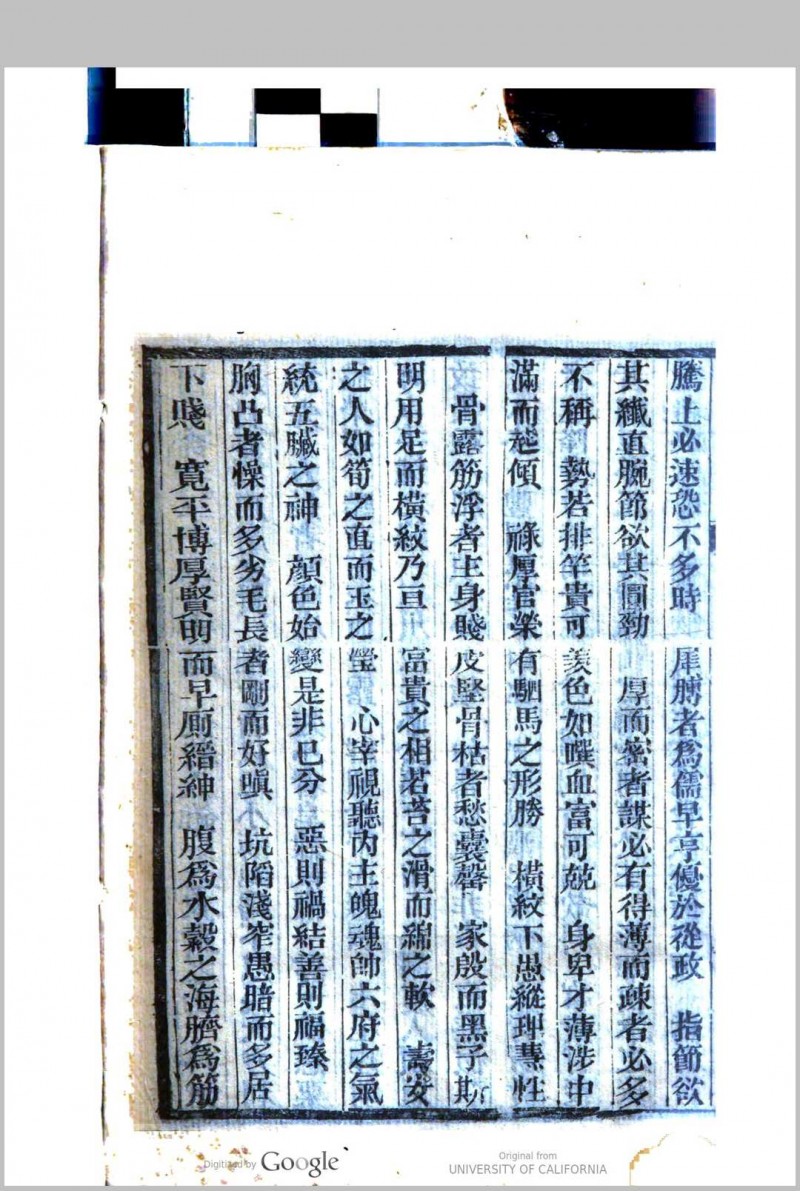 騰上必速恐不多時　犀膊者為儒早亨優於從政　指節欲
其纖直腕節欲其圓勁　厚而密者謀必有得薄而疎者必多
不稱　勢若排竿貴可羨色如噀血富可兢　身卑才薄涉中
滿而起傾　祿厚官榮有駟馬之形勝　橫紋下愚縱理慧性
骨露筋浮者主身賤皮堅骨枯者愁囊罄　家殷而黑子斯
明用足而橫紋乃亘　富貴之相若苔之滑而綿之軟　壽安
之人如筍之直而玉之瑩　心宰視聽內主魄魂帥六府之氣
統五臟之神　顏色始變是非已分　惡則禍結善則福臻
胸凸者懆而多劣毛長者剛而好嗔　坑陷淺窄愚暗而多居
下賤　寬平博厚賢明而早廁縉紳　腹為水穀之海臍為筋
Digitized by Google
Original from
UNIVERSITY OF CALIFORNIA